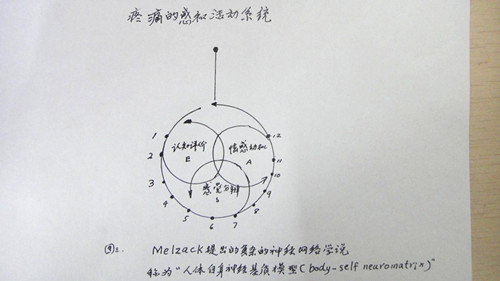 疼痛的感和活动系统
1
12
认知评价
E
情感动机
A
2
11
10
3
感觉分辨
S
9
4
8
5
6
7
注: Melzack提出的复杂的神经网络学说
称为"人体自身神经基质模型(body-self neuromatrix)"